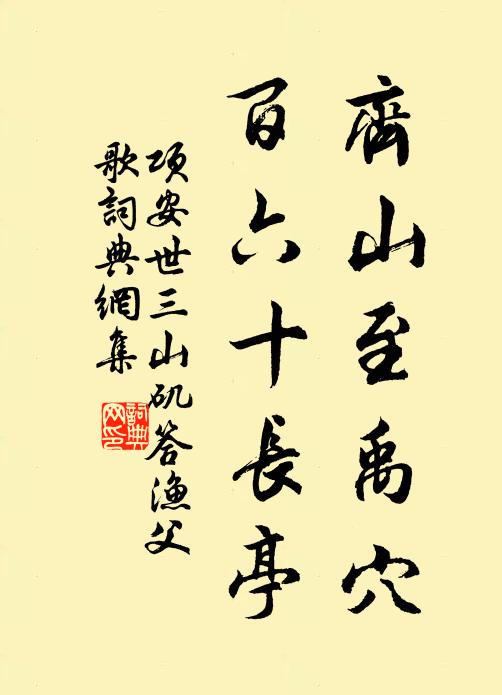 齊山至禹穴
百六十長亭
項安世三山矶答漁父
歌詞典網集
詞典网印